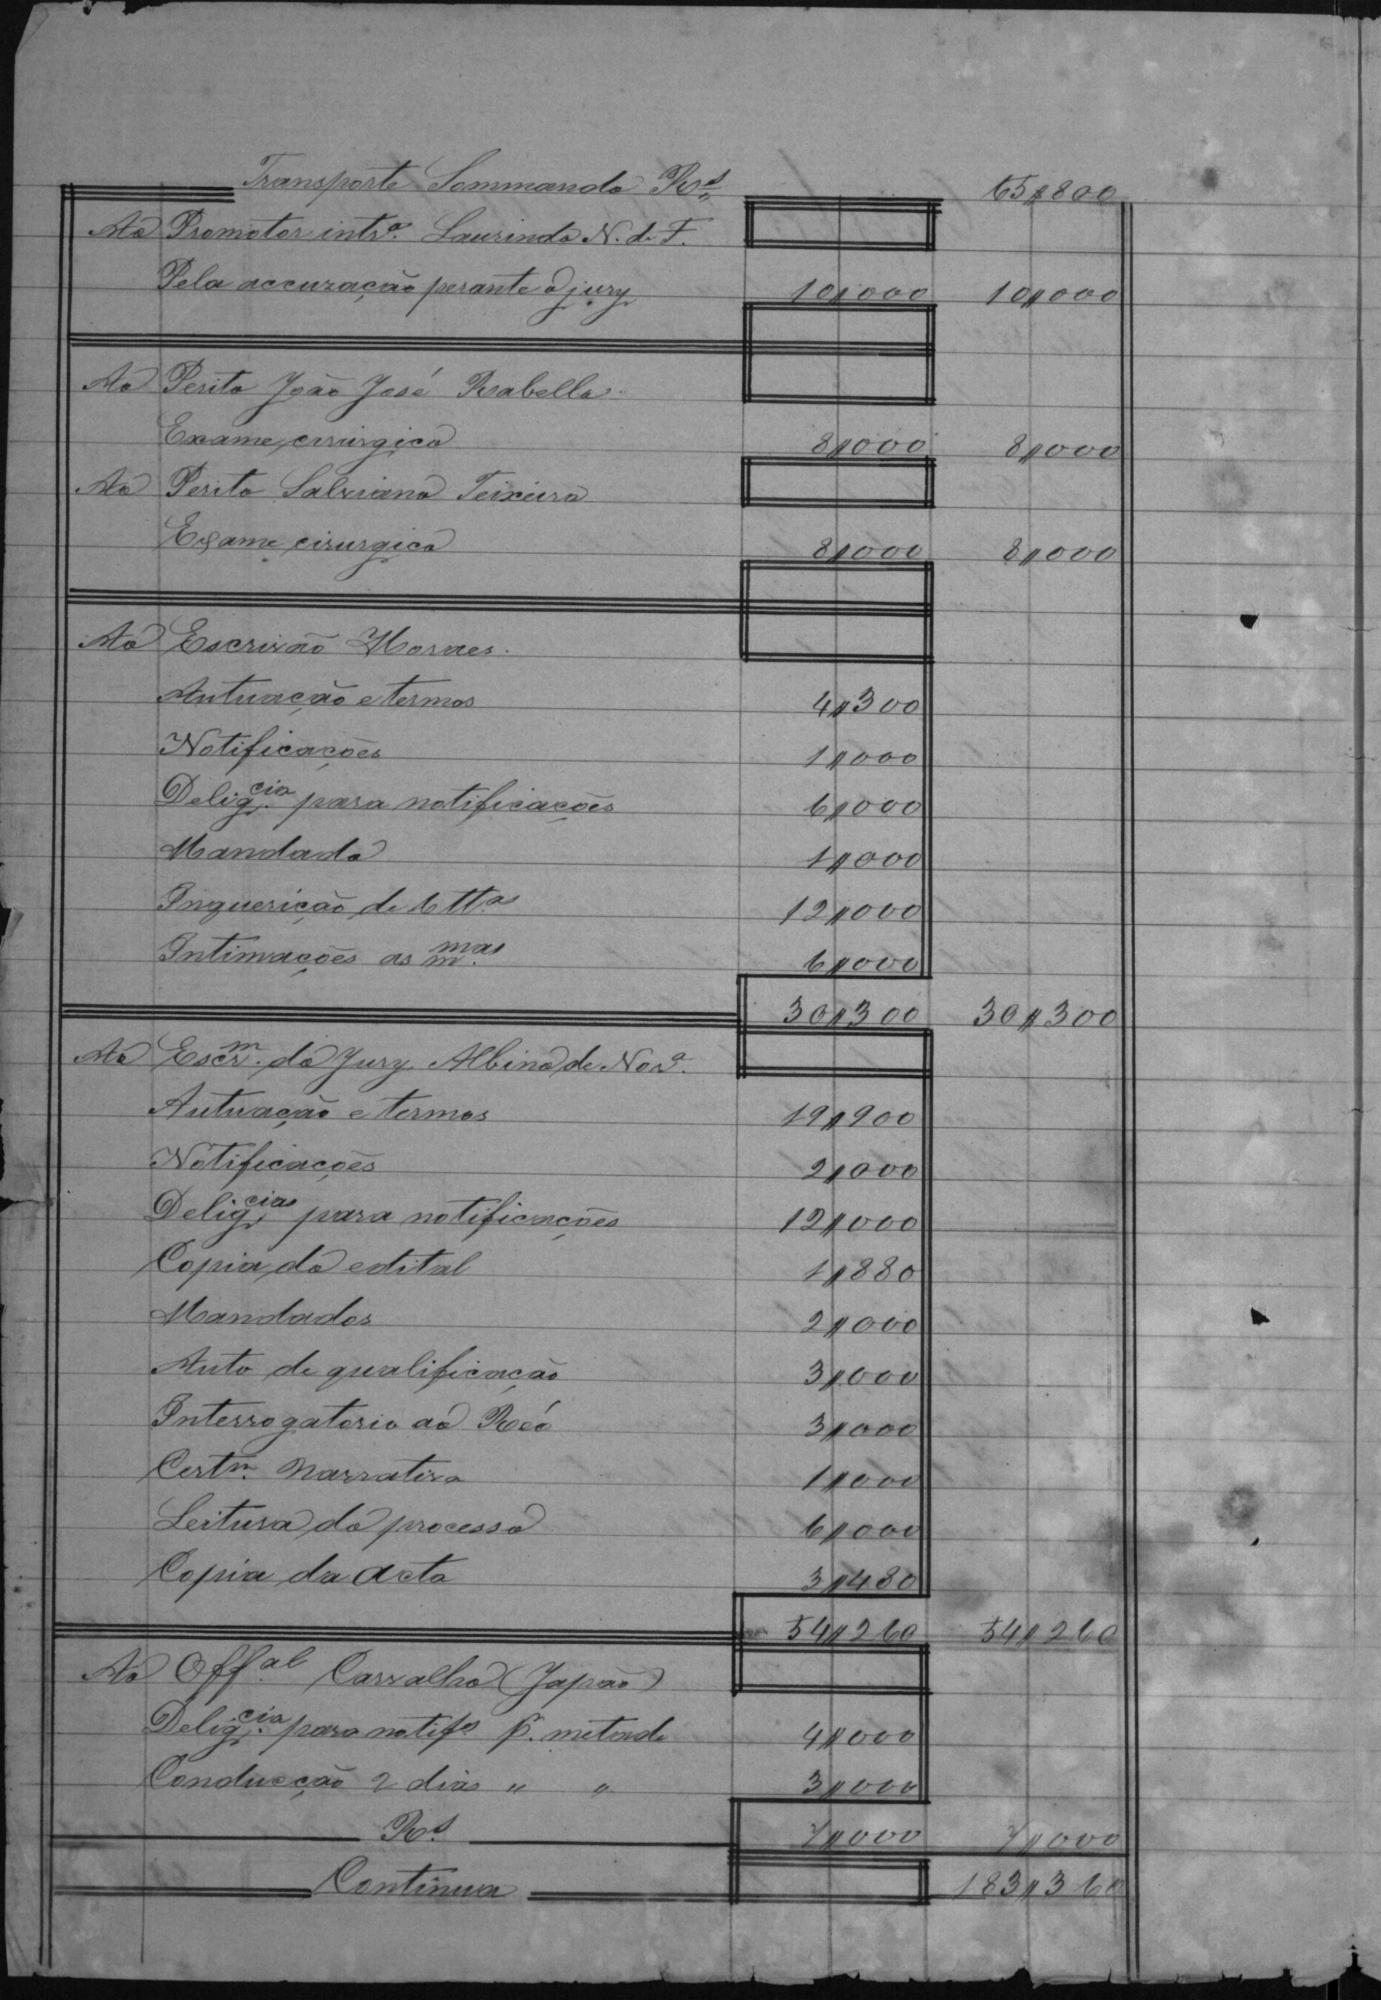 Transporte Sommando Rs 65$800
Ao Promotor intrº. Laurindo N. de F.
Pela accuzação perante o jury 10$000 10$000
Ao Perito João José Rabello.
Exame cirurgico 8$000 8$000
Ao Perito Salviano Teixeira
Exame cirurgico 8$000 8$000
Ao Escrivão Moraes.
Autuação e termos 4$300
Notificações 1$000
Deligcia. para notificações 6$000
Mandado 1$000
Inquerição de 6 ttª 12$000
Intimações as mmas. 6$000
30$300 30$300
Ao Escrm. do Jury Albino de Norª.
Autuação e termos 19$900
Notificações 2$000
Deligcias para notificações 12$000
Copia do edital 1$880
Mandados 2$000
Auto de qualificação 3$000
Interrogatorio ao Réo 3$000
Certm. narrativa 1$000
Leitura do processo 6$000
Copia da acta 3$480
54$260 54$260
Ao Offal. Carvalho (Japão)
Deligcia. para notifs p. metade 4$000
Conducção 2 dias " " 3$000
Rs. 7$000 7$000
Continua 183$360